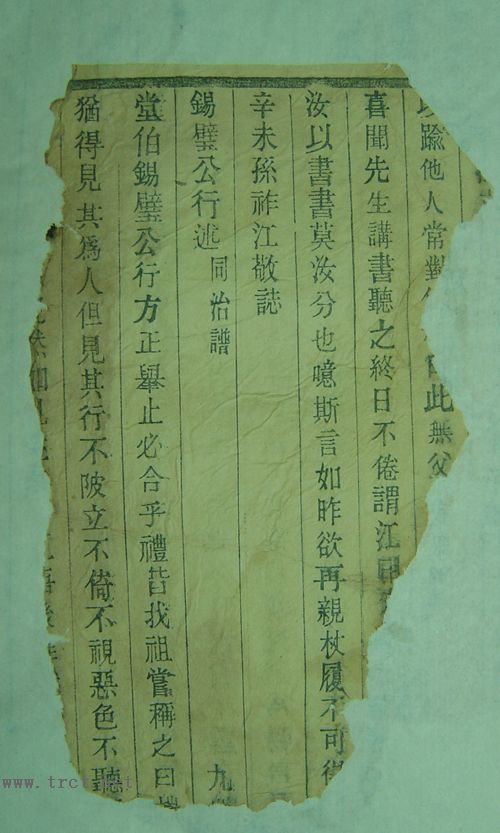 踰他人常對 此無父
喜聞先生講書聽之終日不倦謂江
汝以書書莫汝分也噫斯言如昨欲再親杖履不可得
辛未孫祚江敬誌
錫璧公行述 同治譜
堂伯錫璧公行方正舉止必合乎禮昔我祖嘗稱之曰
猶得見其為人但見其行不陂立不倚不視惡色不聽